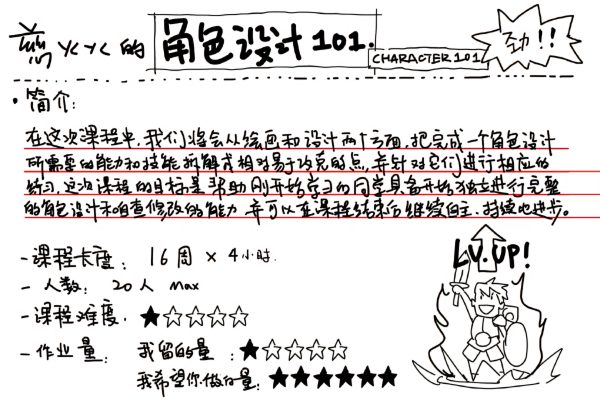 YKYK的
角色设计101.
CHARACTER 101
劲!!
·简介:
在这次课程中,我们将会从绘画和设计两个方面,把完成一个角色设计
所需要的能力和技能拆解成相对易于攻克的点,并针对它们进行相应的
练习.这次课程的目标是帮助刚开始学习的同学具备开始独立进行完整
的角色设计和自查修改的能力,并可以在课程结束后继续自主、持续地进步。
-课程长度: 16周 × 4小时.
- 人数: 20人 max
-课程难度. ★☆☆☆☆
-作业量: 我留的量 :★☆☆☆☆
我希望你做的量:★★★★★★
LV.UP!